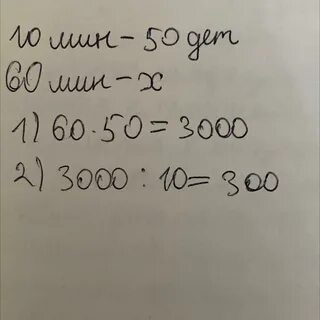 10 мин - 50 дет
60 мин - х
1) 60·50=3000
2) 3000:10=300